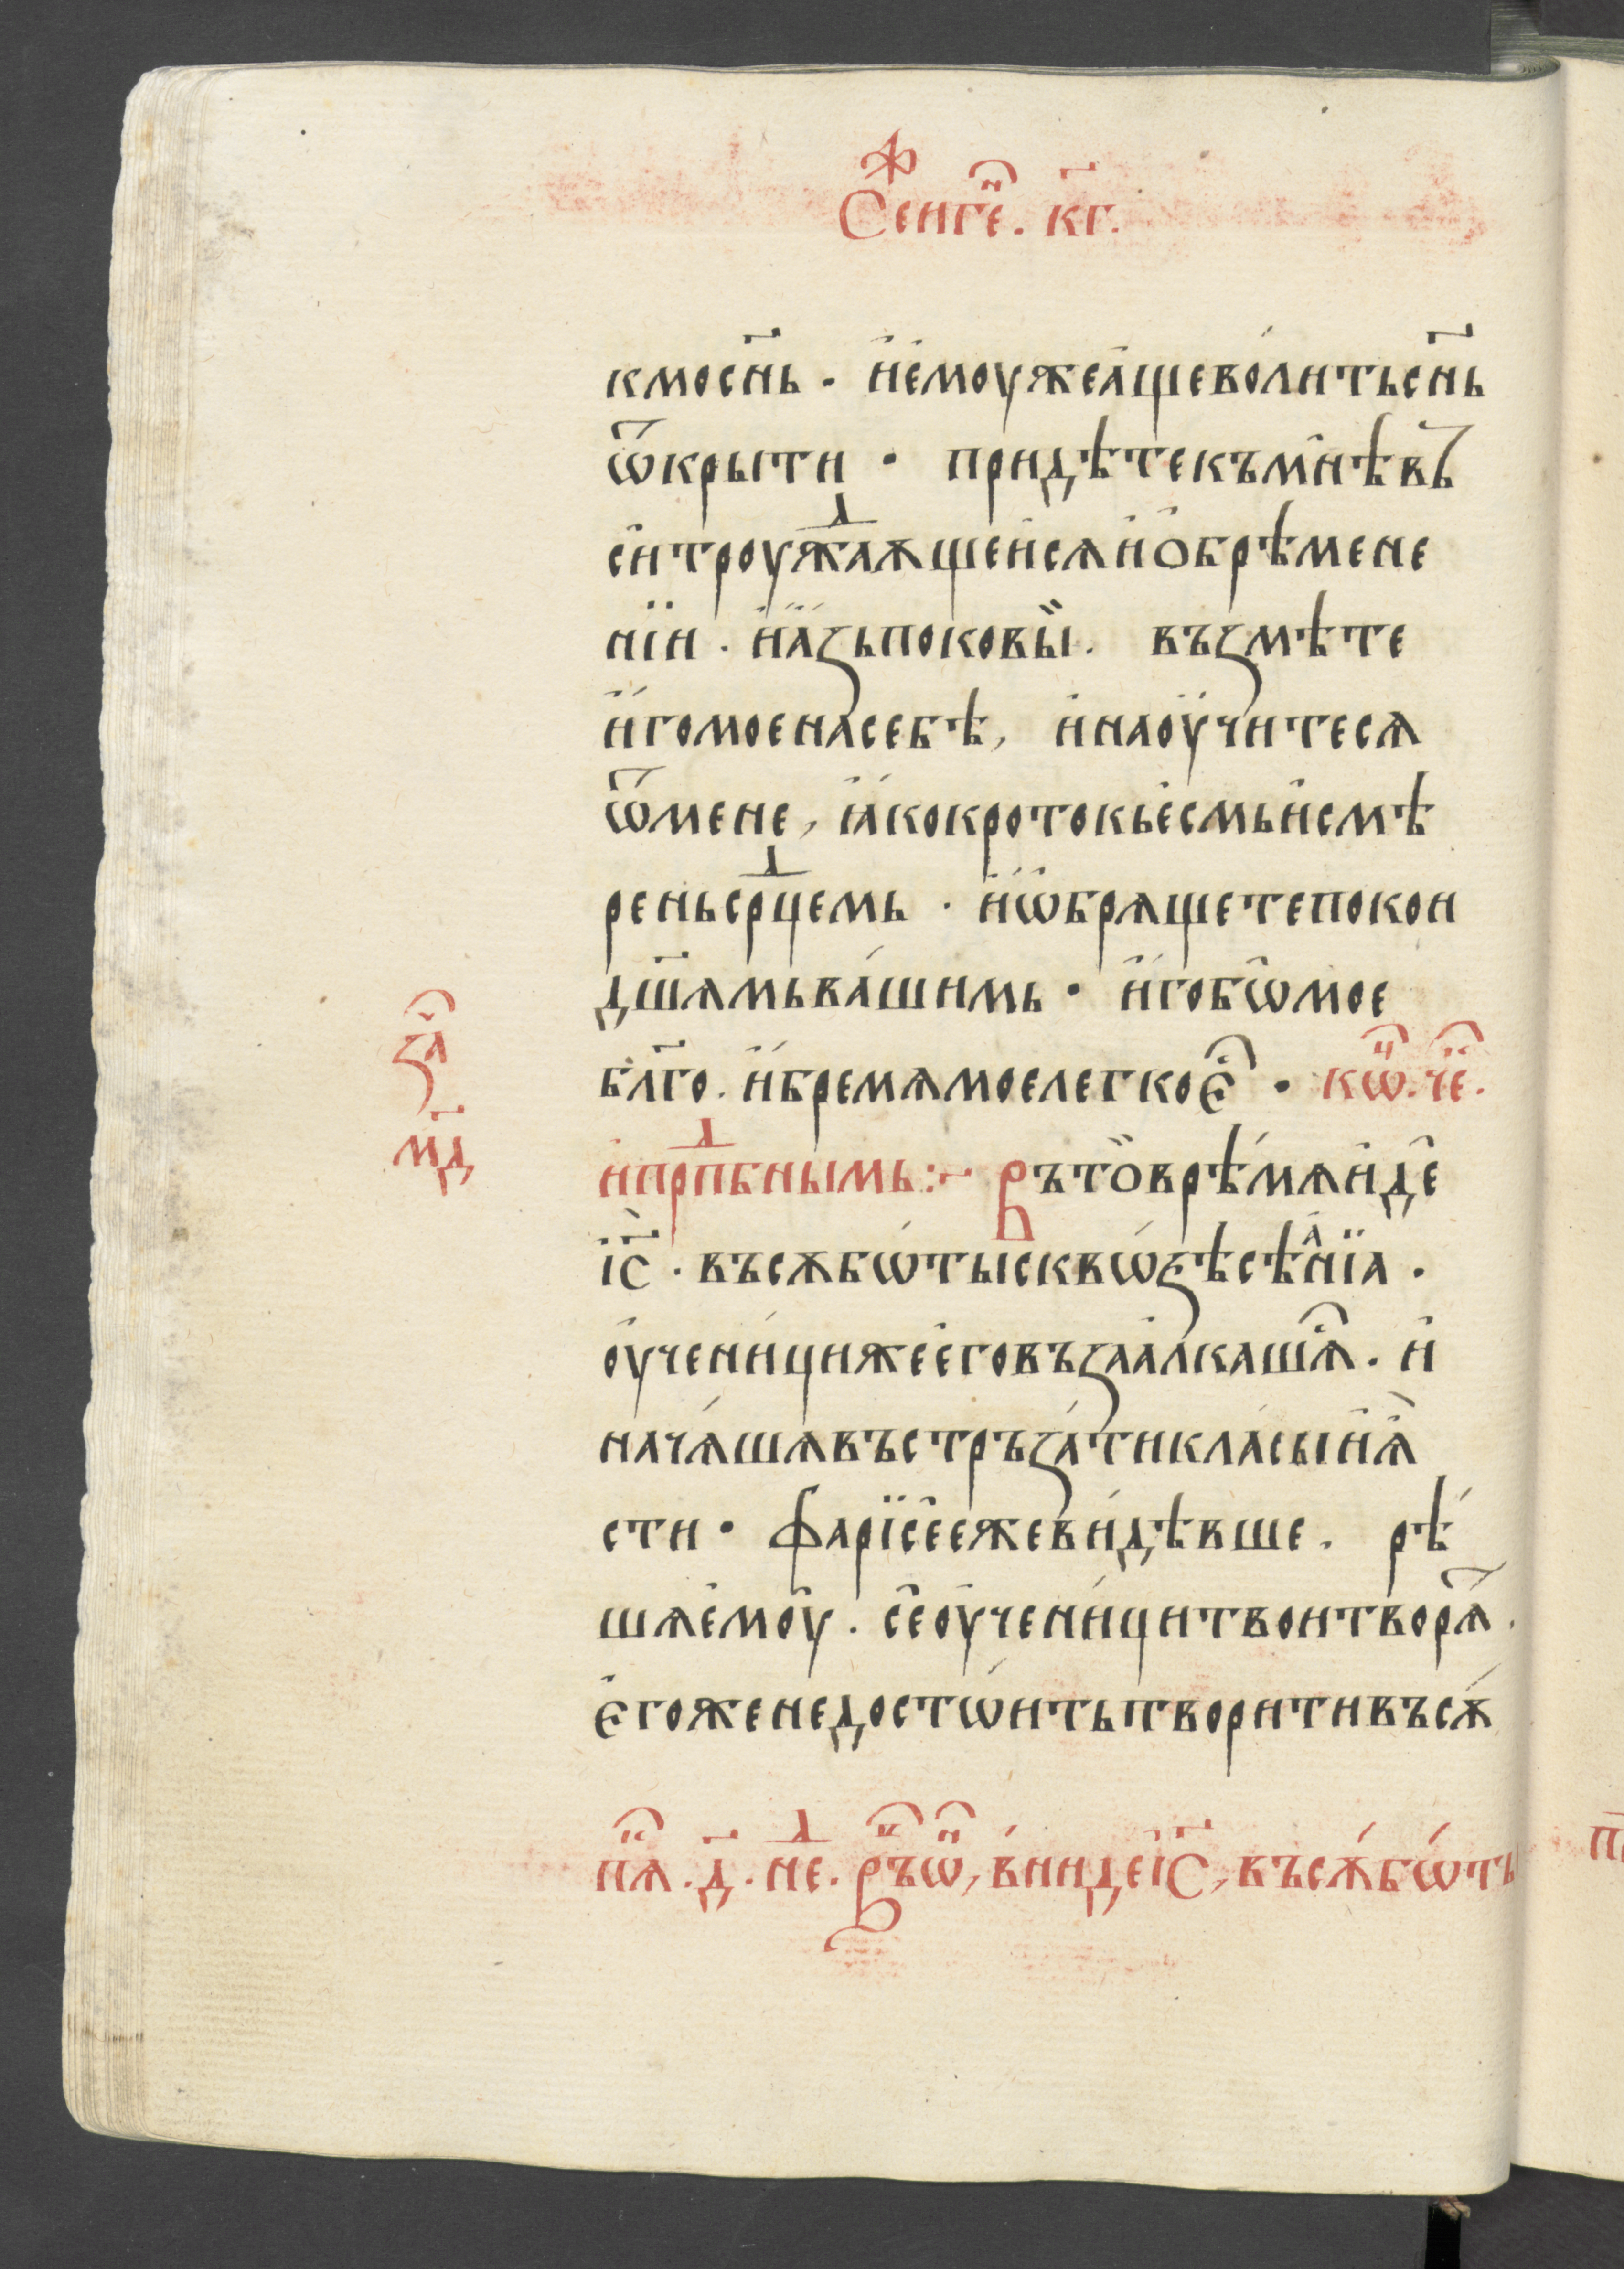 Сенге҃. к҃г.
кмос҃нь. и҆е҆моужеа҆щево́лнтьс҃нь
ѿкрыти · придѣтекъмн̂ѣвь
сѝтроуж҃даѫщеи҆сѧи҆ѻбрѣмене
нїи. и҆а҆́ꙁьпоковы̏. въꙁмѣте
и҆́гомоенасебѣ, и҆наоу҆читесѧ
ѿмене, ꙗ҆́кокротокье҆смьи҆смѣ
реньср҃дцемь · и҆ѡ҆брѧщетепокои
дш҃ѧмьва́шимь · и҆́гобѡ̂мое
бл҃го. и҆́бремѧмоелегкое҆҃ · кѡ҃.че҃.
и҆прп҃дбнымь :~ Въто̏врѣ́мѧи҆де҆
і҆с҃ · въсѫбѡ́тысквѡ́ꙁѣсѣа҆́нїа ·
оу҆чени́цижее҆говъꙁаа҆лкашѧ҃. и҆
нача́шѧвъстръꙁа́тикла́сыи҆ꙗ҆́
сти · фарїсе҆ежеви́дѣвше. рѣ́
шѧе҆моу҆. се҆оу҆чени́цитвоитворѧ҃т.
е҆гоженедостѡ́итьтворитивъсѫ́
нѧ҃.д҃.не҃д. Въѡ҃, в́нидеі҆с҃, въсѫ́бѡ́ты
ꙁа҃
м҃д